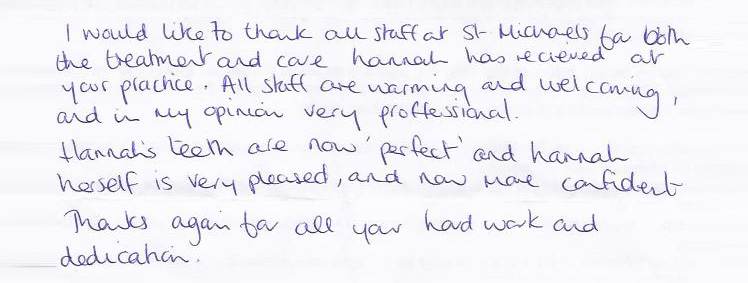 I would like to thank all staff at St Michaels for both
the treatment and care hannah has recieved at
your practice. All staff are warming and welcoming,
and in my opinion very proffessional.
Hannah's teeth are now 'perfect' and hannah
herself is very pleased, and now more confident
Thanks again for all your hard work and
dedication.